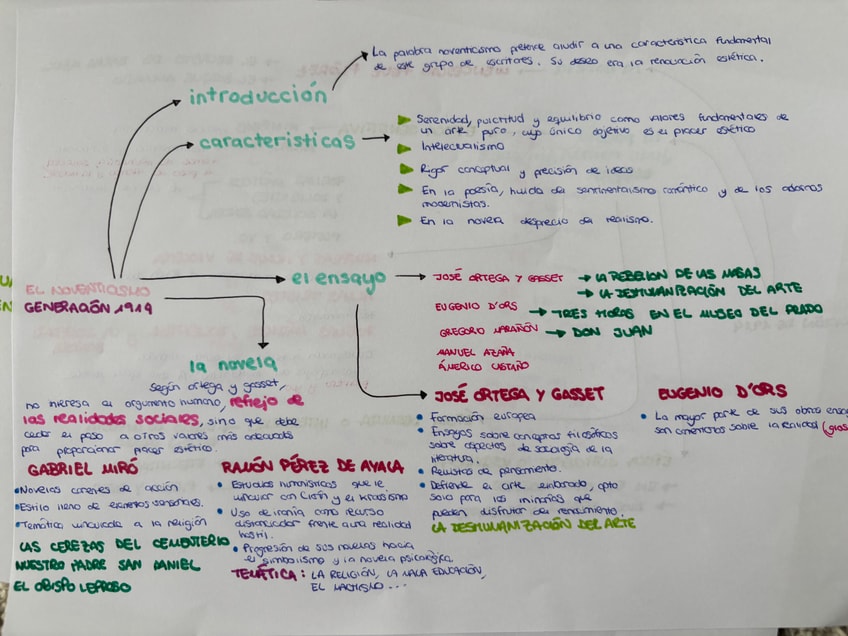 La palabra noventicismo pretende aludir a una característica fundamental
de este grupo de escritores. Su deseo era la renovación estética.
introducción
características
Serenidad, pulcritud y equilibrio como valores fundamentales de
un arte puro, cuyo único objetivo es el placer estético
Intelectualismo
Rigor conceptual y precisión de ideas
En la poesía, huida del sentimentalismo romántico y de los adornos
modernistas.
En la novela desprecio del realismo.
EL NOVENTICISMO
GENERACIÓN 1914
el ensayo
JOSÉ ORTEGA Y GASSET → LA REBELION DE LAS MASAS
→ LA DESHUMANIZACIÓN DEL ARTE
EUGENIO D'ORS → TRES HORAS EN EL MUSEO DEL PRADO
GREGORIO MARAÑÓN → DON JUAN
MANUEL AZAÑA
AMÉRICO CASTRO
la novela
según ortega y gasset,
no interesa el argumento humano, reflejo de
las realidades sociales, sino que debe
ceder el paso a otros valores más adecuados
para proporcionar placer estético.
GABRIEL MIRÓ
Novelas carentes de acción.
Estilo lleno de elementos sensoriales.
Temática vinculada a la religión
LAS CEREZAS DEL CEMENTERIO
NUESTRO PADRE SAN DANIEL
EL OBISPO LEPROSO
RAMÓN PÉREZ DE AYALA
Estudios humanísticos que le
vinculan con Clarín y el krausismo
Uso de ironía como recurso
distanciador frente a una realidad
hostil.
Progresión de sus novelas hacia
el simbolismo y la novela psicológica.
TEMÁTICA: LA RELIGIÓN, LA MALA EDUCACIÓN,
EL MACHISMO...
JOSÉ ORTEGA Y GASSET
Formación europea
Ensayos sobre conceptos filosóficos
sobre aspectos de sociología de la
literatura.
Revistas de pensamiento.
Defiende el arte elaborado, apto
solo para las minorías que
pueden disfrutar del
LA DESHUMANIZACIÓN DEL ARTE
EUGENIO D'ORS
La mayor parte de sus obras
son comentarios sobre la realidad